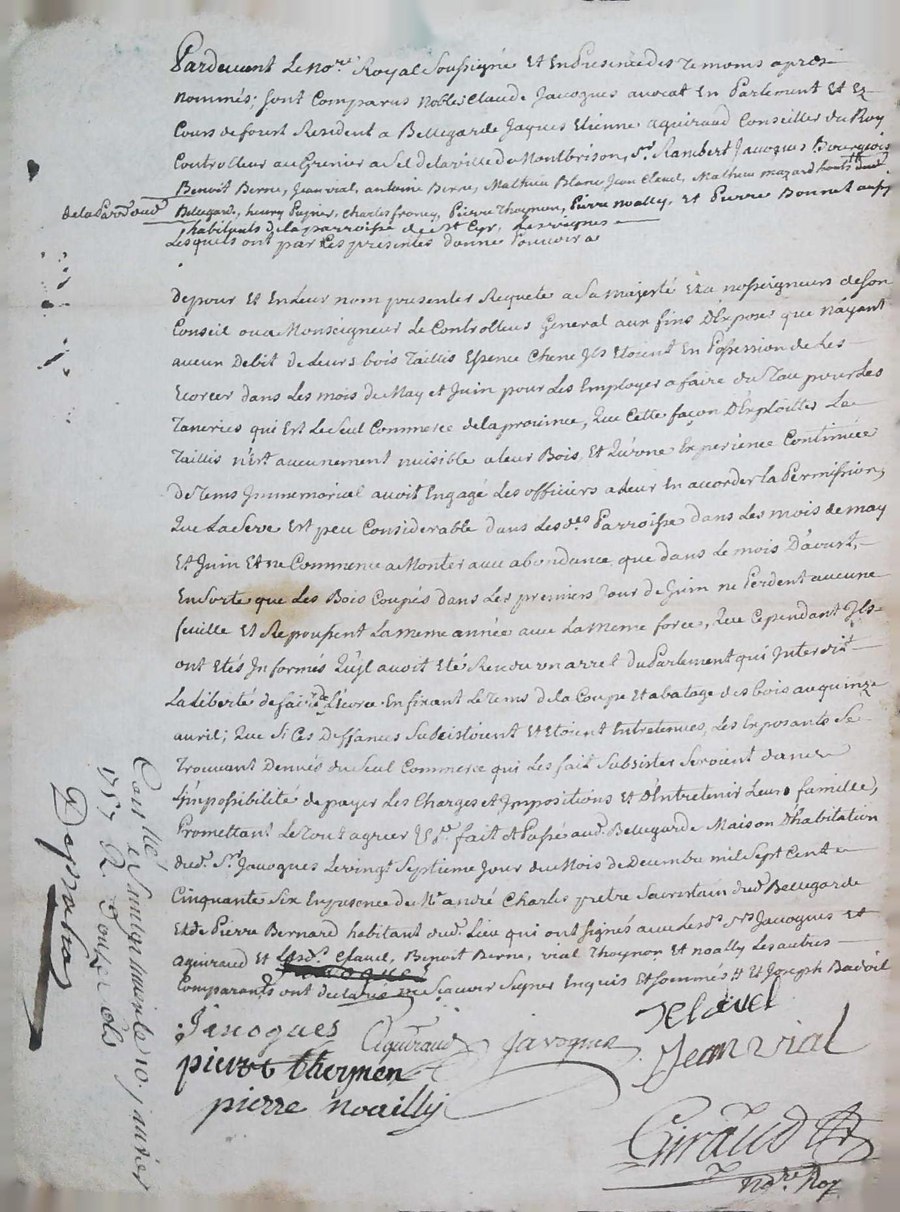 Pardevent Le No.re Royal Soussigné Et En Presence des Temoins apres
nommés; sont Comparus Nobles Claude Javogues avocat En Parlement Et Ez
Cours de fourt Resident a Bellegarde Jaques Etienne aguiraud Conseiller du Roy
Controlleur au Grenier a Sel de la ville de Montbrison, Sr. Rambert Javogues Bourgeois
Benoit Berne, Jean vial, antoine Berne, Mathieu Blanc Jean Clavel, Mathieu mazard
de la Par.se dud. Bellegarde, henry Puynet, Charles froney, Pierre Thoynon, Pierre noally, Et Pierre Bonnet aussy
habitants de la parroisse de St Cyr, Les vignes
Lesquels ont par Les presentes donné Pouvoir a
De pour Et En Leur nom presenter Requete a Sa Majesté Et a nosseigneurs de Son
Conseil ou a Monseigneur Le Controlleur General aux fins D'Exposer que N'ayant
aucun Debit de Leurs bois Taillis Essence Chene Ils Etoient En Possession de Les
Ecorcer dans Les mois de May et Juin pour Les Employer a faire du Tau pour Les
Taneries qui Est Le Seul Commerce de la province, Que Cette façon D'Exploitter Le
Taillis n'Est aucunement nuisible a leur Bois Et Qu'une Experience Continuée
de Tems Immemorial avoit Engagé Les officiers a Leur En accorder la Permission,
Que La Seve Est peu Considerable dans Lesd.es Parroisse dans Les mois de may
Et Juin Et ne Commence a Monter avec abondance que dans Le mois D'avust,
En Sorte que Les Bois Coupés dans Les premiers Jour de Juin ne Perdent aucune
feuille Et Repoussent La meme année avec La meme force, Que Cependant Ils
ont Etés Informés Qu'Il avoit Eté Rendu un arret du Parlement qui Interdit
La Liberté de faire de L'écorce En fixant Le Tems de la Coupe Et abatage des bois au quinze
avril; Que Si Ces Deffances Subcistoient Et Etoient Entretenues, Les Exposants Se
Trouvant Denués du Seul Commerce qui Les fait Subsister Seroient dans
L'Impossibilité de payer Les Charges et Impositions Et D'Entretenir Leur famille,
Promettant Le Tout agréer fait Et Passé aud. Bellegarde Maison D'habitation
dud. Sr. Javogues Le vingt Septieme Jour du Mois de Decembre mil Sept Cent
Cinquante Six En presence de Mr. andré Charles pretre Sacristain dud. Bellegarde
Et de Pierre Bernard habitant dud. Lieu qui ont Signés avec Lesd. Srs Javogues Et
aguiraud Et Clavel, Benoit Berne, vial Thoynon Et noally Les autres
Comparants ont declarés ne Scavoir Signer Enquis Et Sommés Et Joseph
Javogues Aguiraud Javogues JClavel
pierre thoynon Jean vial
pierre noailly
Giraud
No.re Roy.
Con.llé et le 10. janvier
1757 R. Douze sols